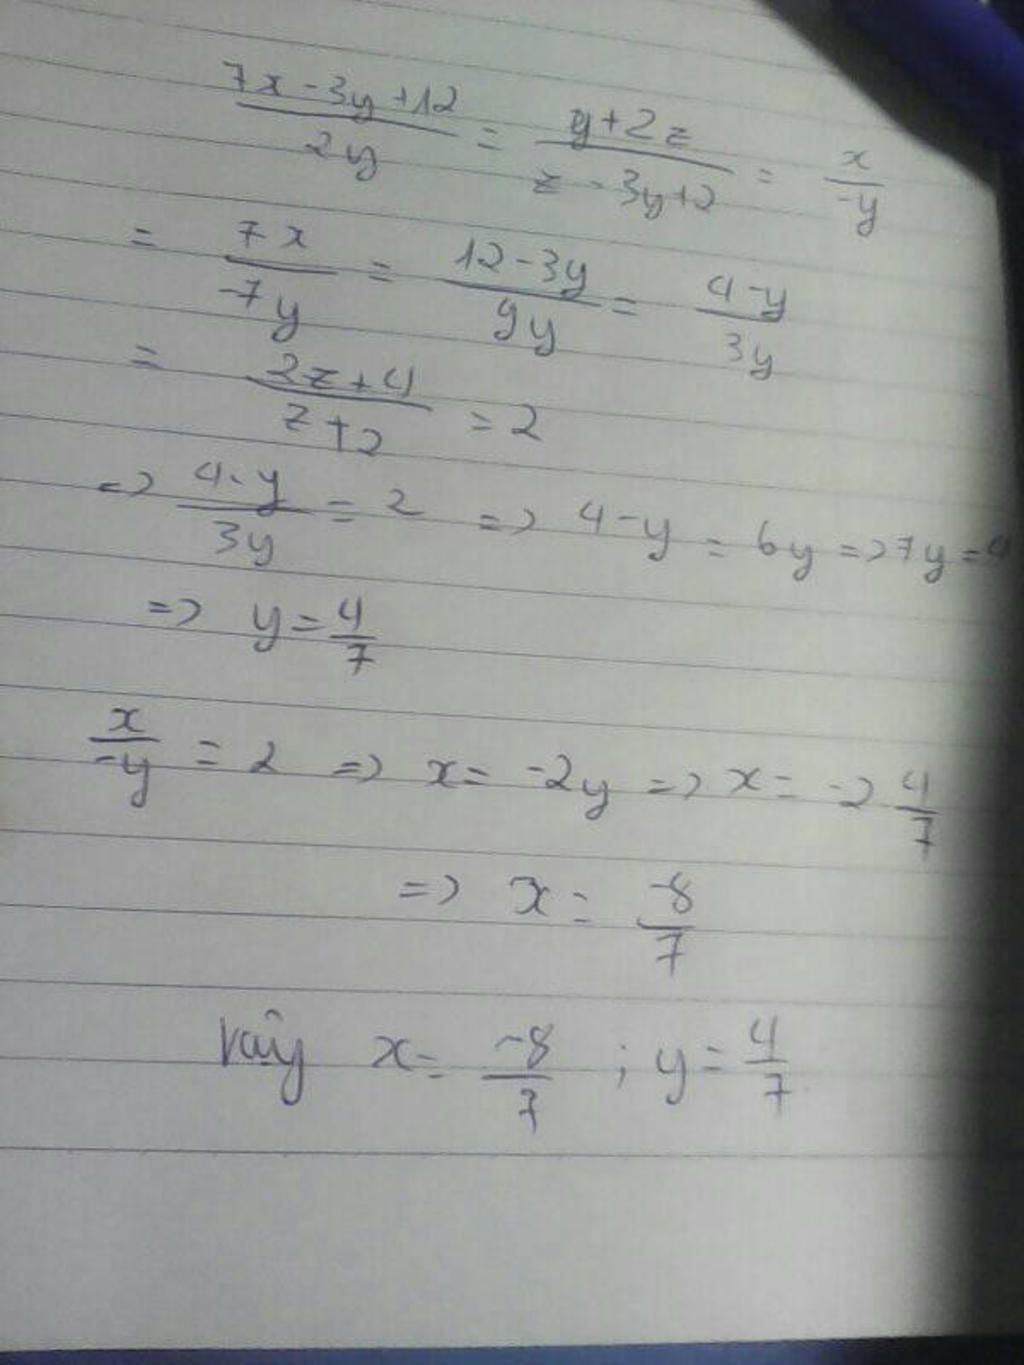 (7x - 3y + 12)/(2y) = (y + 2z)/(z - 3y + 2) = x/(-y)
= 7x/(-7y) = (12 - 3y)/(9y) = (4 - y)/(3y)
= (2z + 4)/(z + 2) = 2
=> (4 - y)/(3y) = 2 => 4 - y = 6y => 7y = 4
=> y = 4/7
x/(-y) = 2 => x = -2y => x = -2 4/7
=> x = -8/7
Vậy x = -8/7 ; y = 4/7